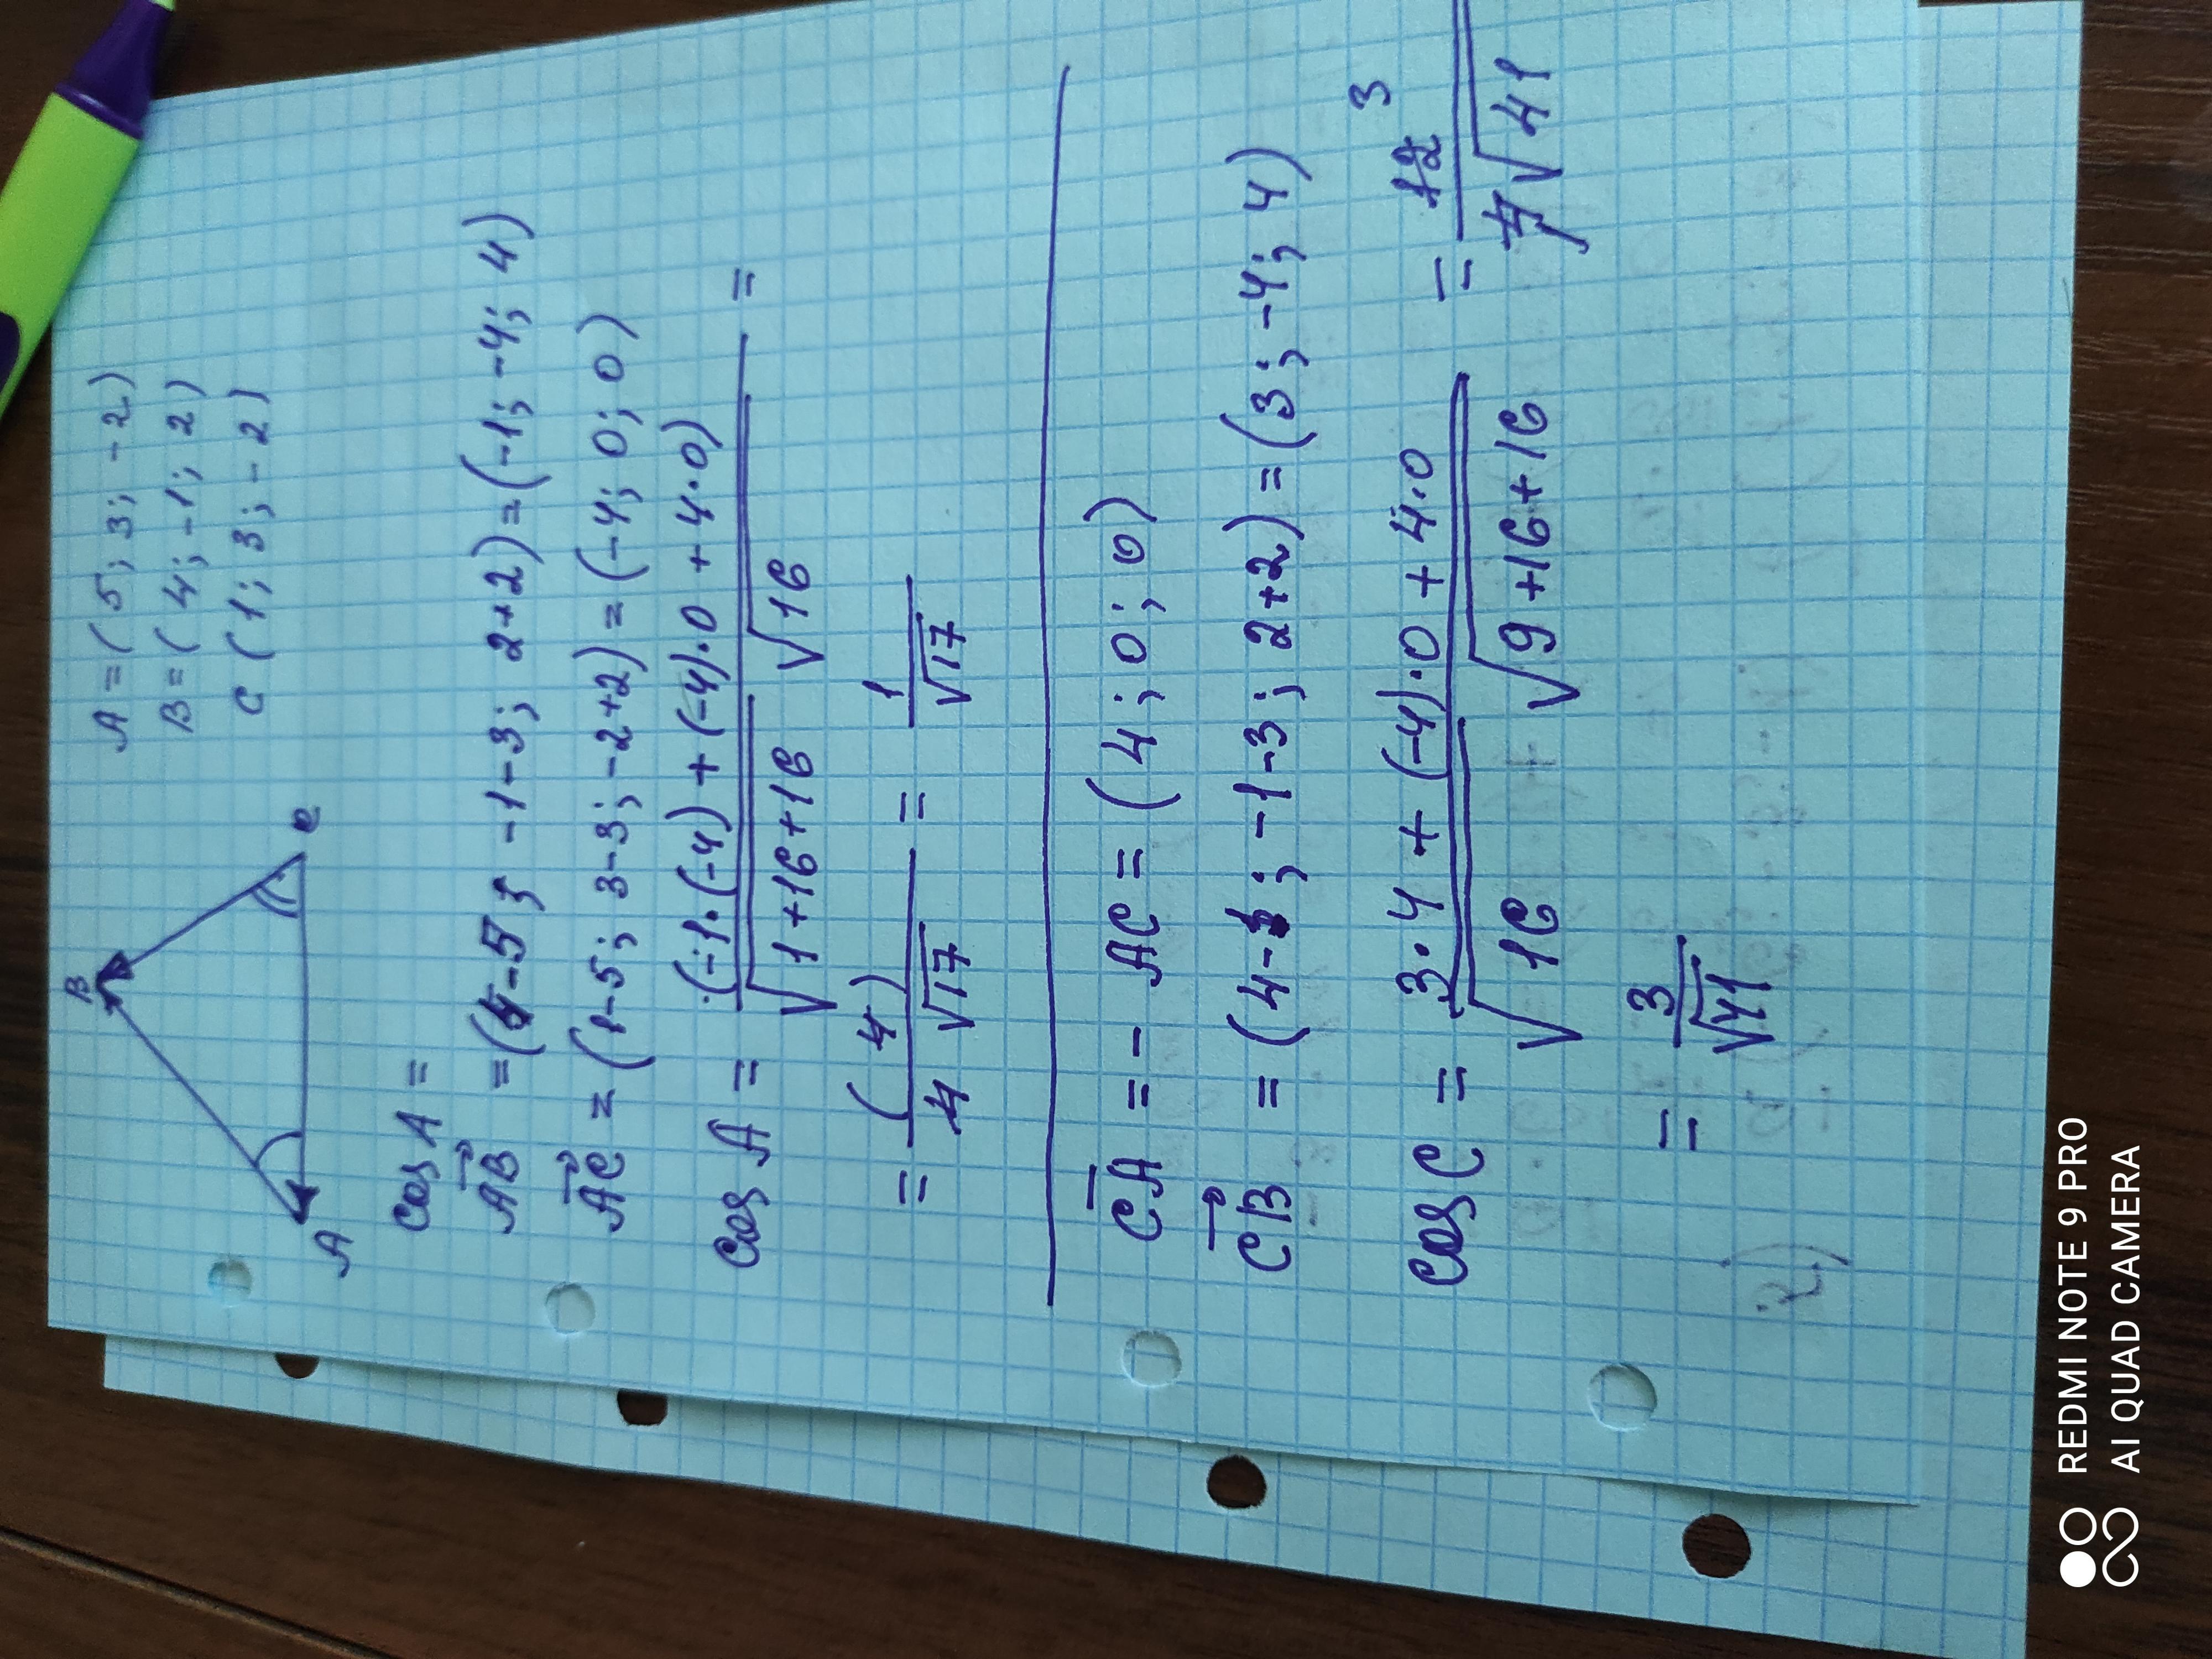 B
A
C
A = (5; 3; -2)
B = (4; -1; 2)
C (1; 3; -2)
cos A =
AB = (4-5; -1-3; 2+2) = (-1; -4; 4)
AC = (1-5; 3-3; -2+2) = (-4; 0; 0)
cos A = (-1·(-4) + (-4)·0 + 4·0) / √1+16+16 √16 =
= (4) / 4 √17 = 1 / √17
CA = - AC = (4; 0; 0)
CB = (4-1; -1-3; 2+2) = (3; -4; 4)
cos C = 3·4 + (-4)·0 + 4·0 / √16 √9+16+16 = 12 3 / 4 √41
= 3 / √41
REDMI NOTE 9 PRO
AI QUAD CAMERA